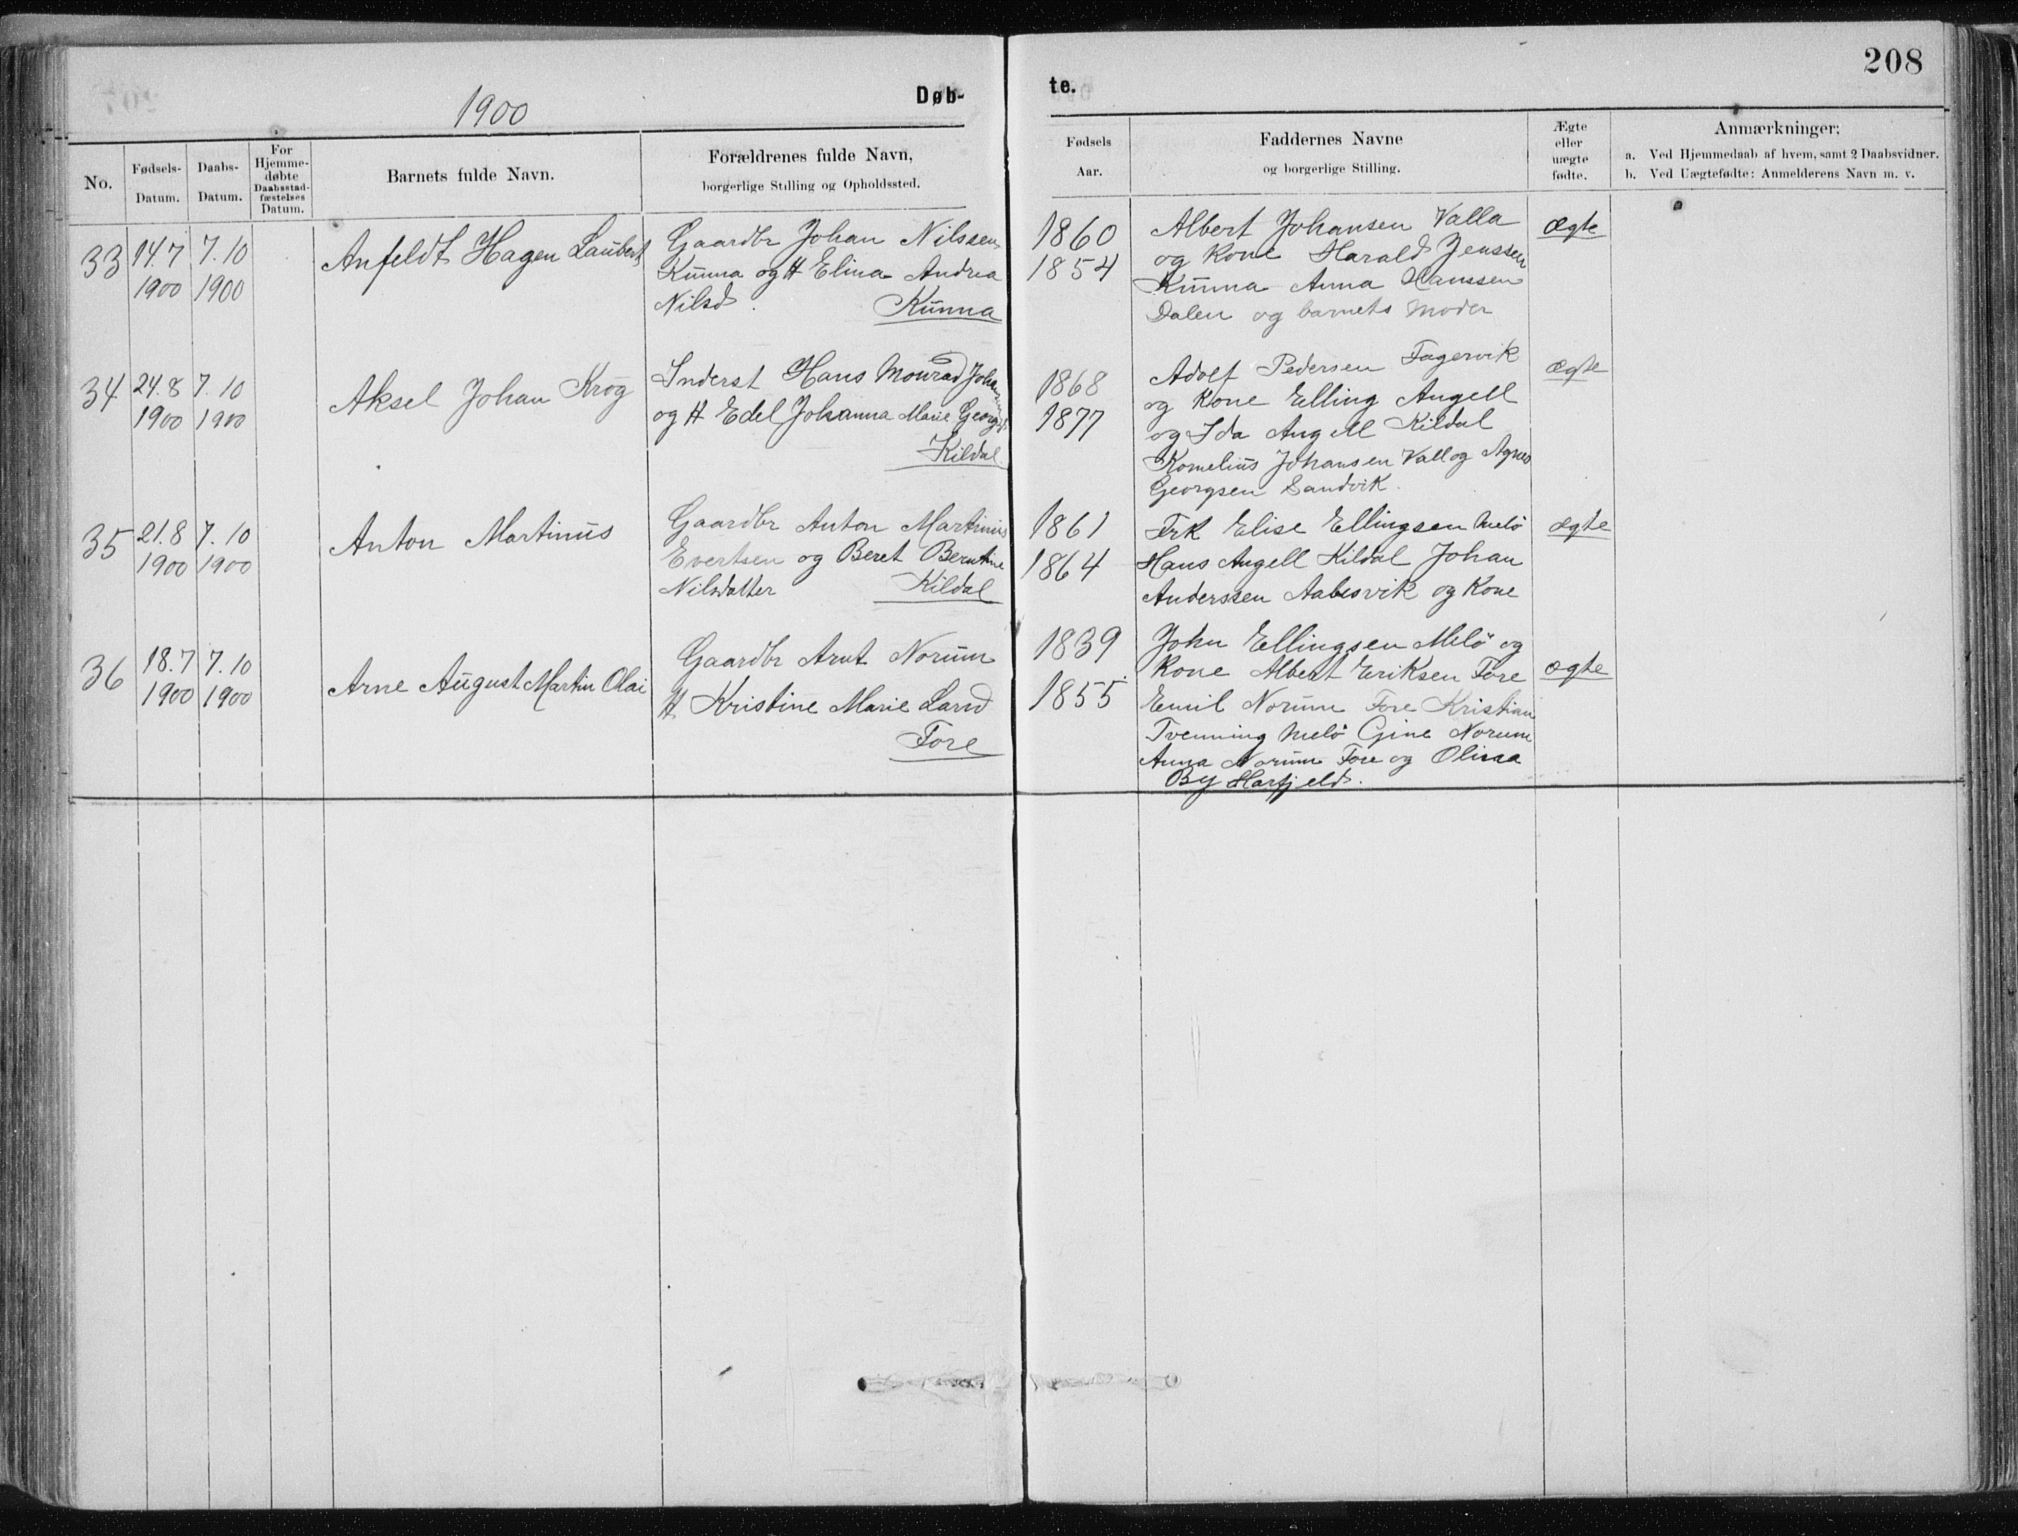 208
1900
Døb-
te.
No.
Fødsels-
Datum.
Daabs-
Datum.
For
Hjemme-
døbte
Daabsstad-
fæstelses
Datum.
Barnets fulde Navn.
Forældrenes fulde Navn,
borgerlige Stilling og Opholdssted.
Fødsels
Aar.
Faddernes Navne
og borgerlige Stilling.
Ægte
eller
uægte
fødte.
Anmærkninger;
a. Ved Hjemmedaab af hvem, samt 2 Daabsvidner.
b. Ved Uægtefødte: Anmelderens Navn m. v.
33
14.7
1900
7.10
1900
Anfeldt Hagen Laubert
Gaardbr Johan Nilssen
Kunna og H Elina Andrea
Nilsd.
Kunna
1860
1854
Albert Johansen Valla
og Kone Harald Jenssen
Kunna Anna Hanssen
Dalen og barnets Moder
ægte
34
24.8
1900
7.10
1900
Aksel Johan Krog
Inderst Hans Monrad
og H Edel Johanna Marie
Kildal
1868
1877
Adolf Pedersen Fagervik
og Kone Elling Angell
og Ida Angell Kildal
Kornelius Johansen Vall og Agnes
Georgsen Sandvik.
ægte
35
21.8
1900
7.10
1900
Anton Martinus
Gaardbr Anton Martinius
Evertsen og Beret Berntine
Nilsdatter
Kildal
1861
1864
Frk Elise Ellingsen Melö
Hans Angell Kildal Johan
Anderssen Aabesvik og Kone
ægte
36
18.7
1900
7.10
1900
Arne August Martin Olai
Gaardbr Arnt Norum
H Kristine Marie Larsd
Fore
1839
1855.
John Ellingsen Melö og
Kone Albert Eriksen Fore
Emil Norum Fore Kristian
Tvenning Melö Gine Norum
Anna Norum Fore og
By
ægte